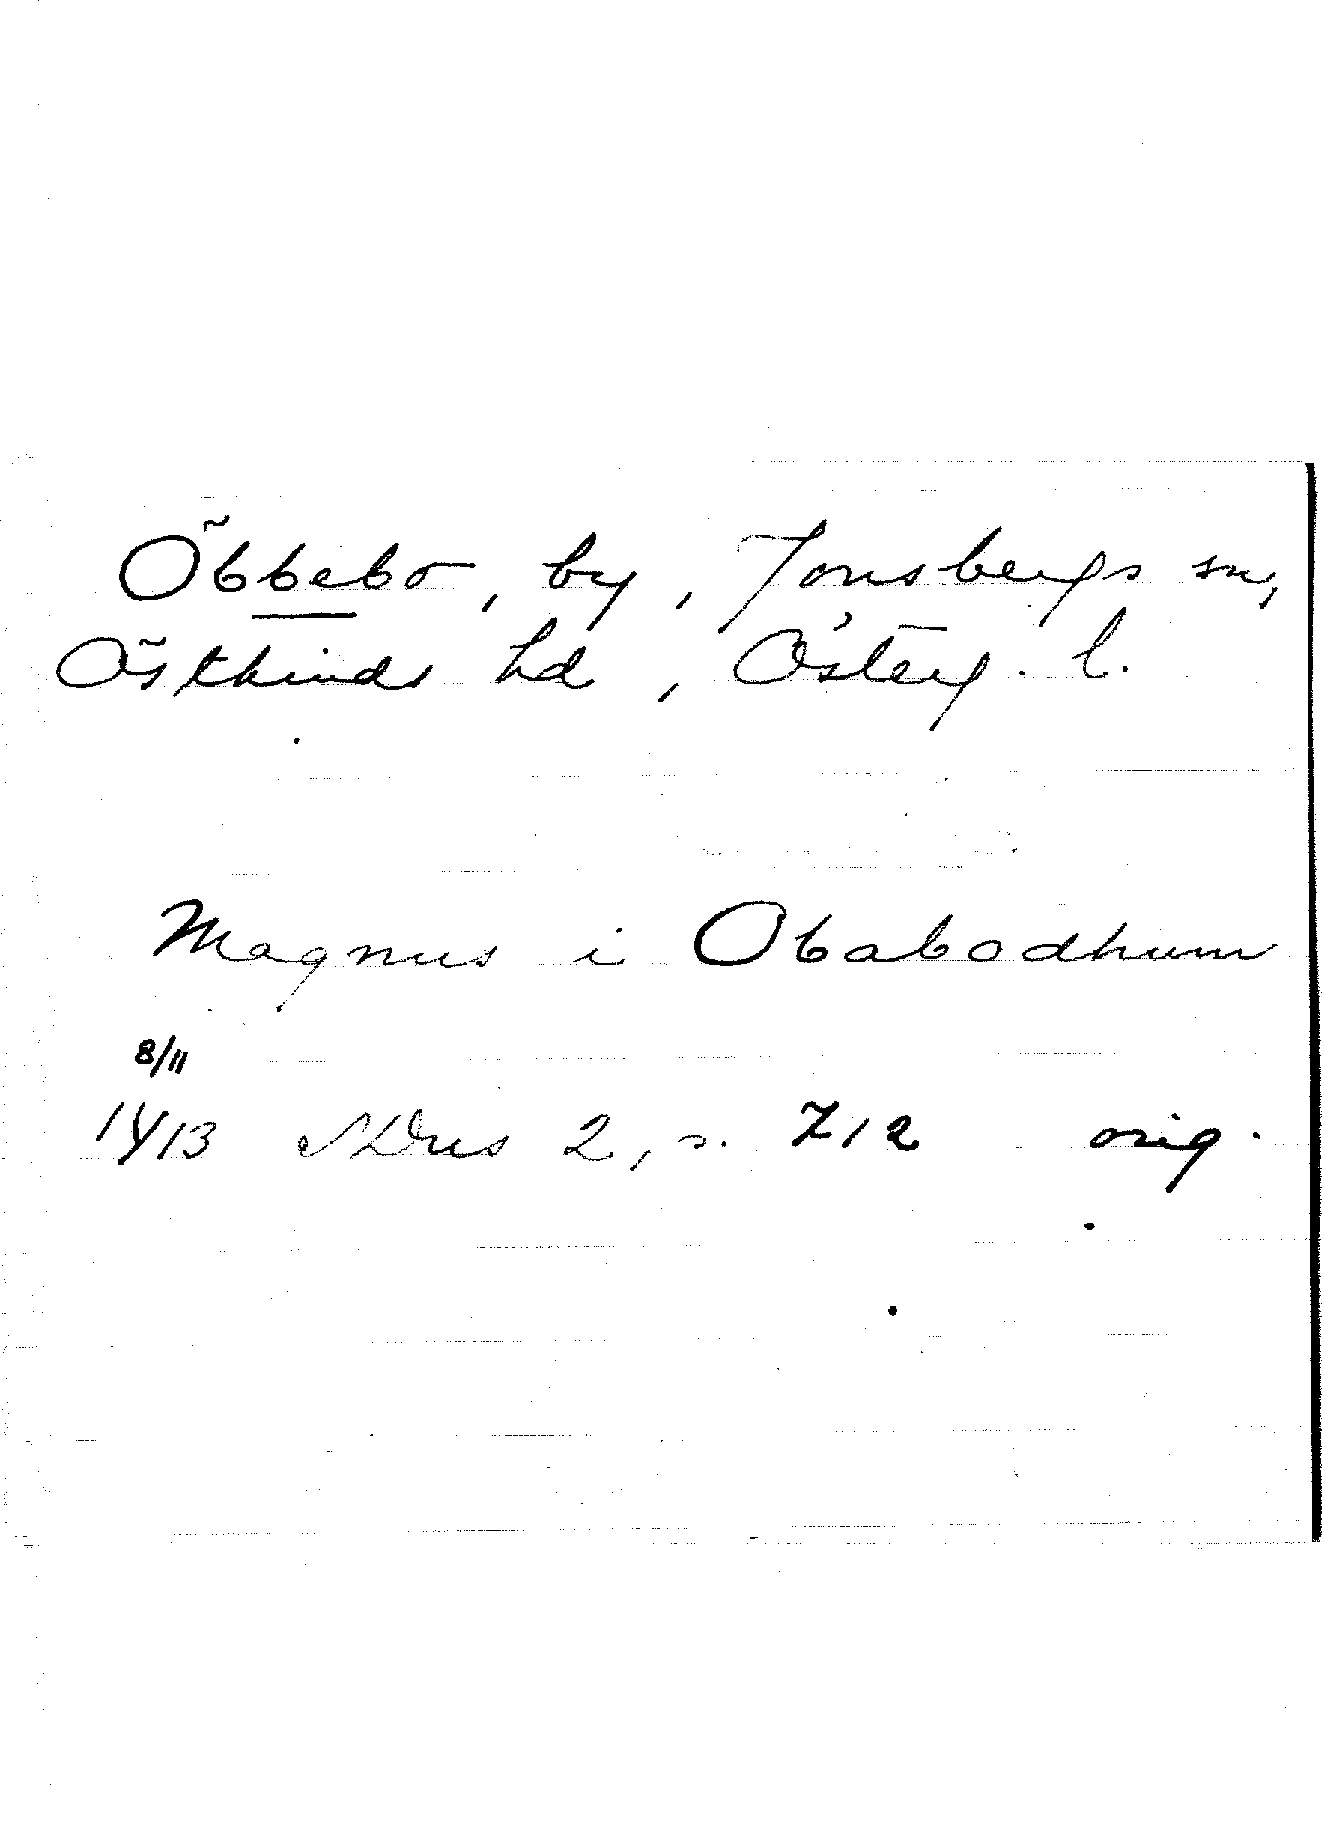 Öbbebo, by, Jonsbergs sn,
Östkinds hd, Österg. l.
Magnus i Obabodhum
8/11
1413 SDns 2, s. 212 orig.